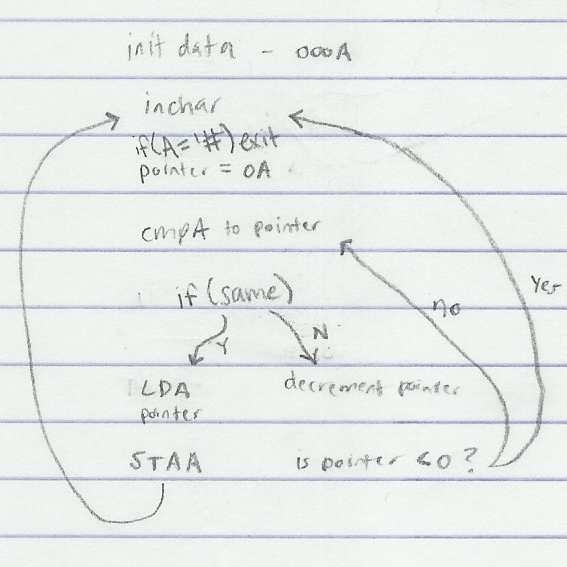 init data - 000A
inchar
if(A='#')exit
pointer = 0A
cmpA to pointer
if (same)
Y N
LDA decrement pointer
pointer
STAA is pointer < 0 ?
no
Yes